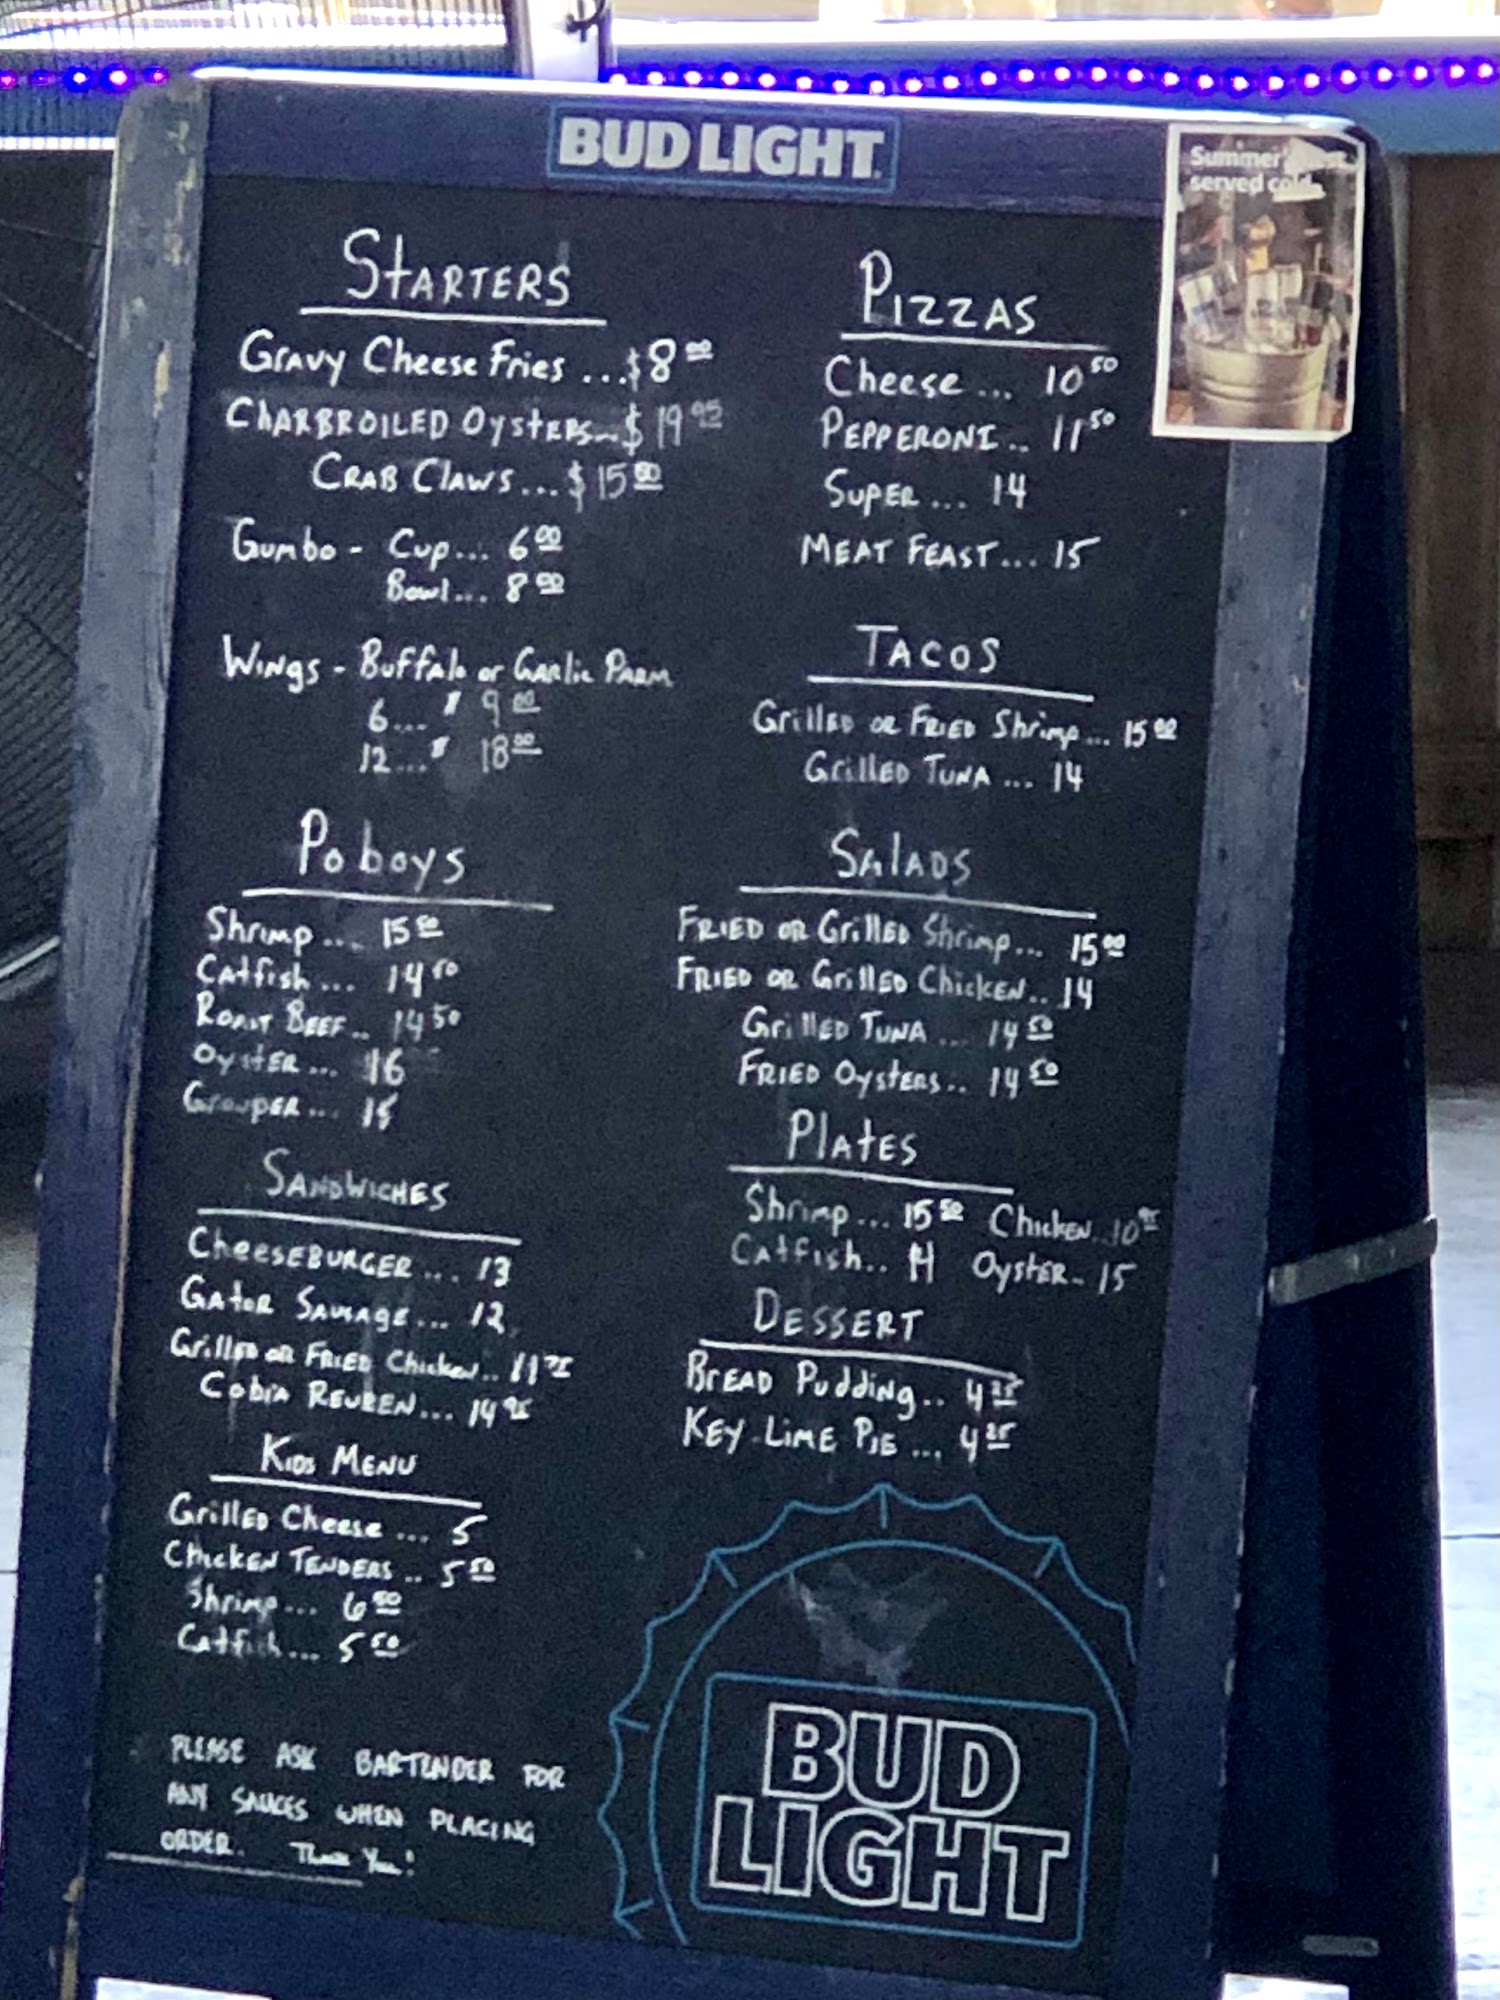 BUD LIGHT
Summer's best
served cold.
STARTERS
Gravy Cheese Fries ...$8.00
CHARBROILED OYSTERS...$19.95
CRAB CLAWS...$15.00
Gumbo - Cup... 6.00
Bowl... 8.00
WINGS - Buffalo or Garlic Parm
6... $ 9.00
12...$ 18.00
Po boys
Shrimp ... 15.50
Catfish ... 14.50
Roast Beef.. 14.50
Oyster ... 16
Grouper ... 15
SANDWICHES
CheeseBURGER ... 13
Gator Sausage ... 12
Grilled or Fried Chicken.. 11.75
Cobia Reuben ... 14.95
Kids Menu
Grilled Cheese ... 5
Chicken Tenders .. 5.50
Shrimp ... 6.50
Catfish ... 5.50
PLEASE ASK BARTENDER FOR
ANY SAUCES WHEN PLACING
ORDER. Thank You!
PIZZAS
Cheese ... 10.50
PEPPERONI .. 11.50
SUPER ... 14
MEAT FEAST ... 15
TACOS
Grilled or Fried Shrimp ... 15.00
Grilled Tuna ... 14
SALADS
FRIED OR Grilled Shrimp ... 15.00
FRIED OR Grilled Chicken .. 14
Grilled TUNA ... 14.50
FRIED Oysters.. 14.50
Plates
Shrimp ... 15.50 Chicken..10.95
Catfish.. 14 Oyster.. 15
DESSERT
BREAD Pudding .. 4.25
KEY LIME PIE ... 4.25
BUD
LIGHT